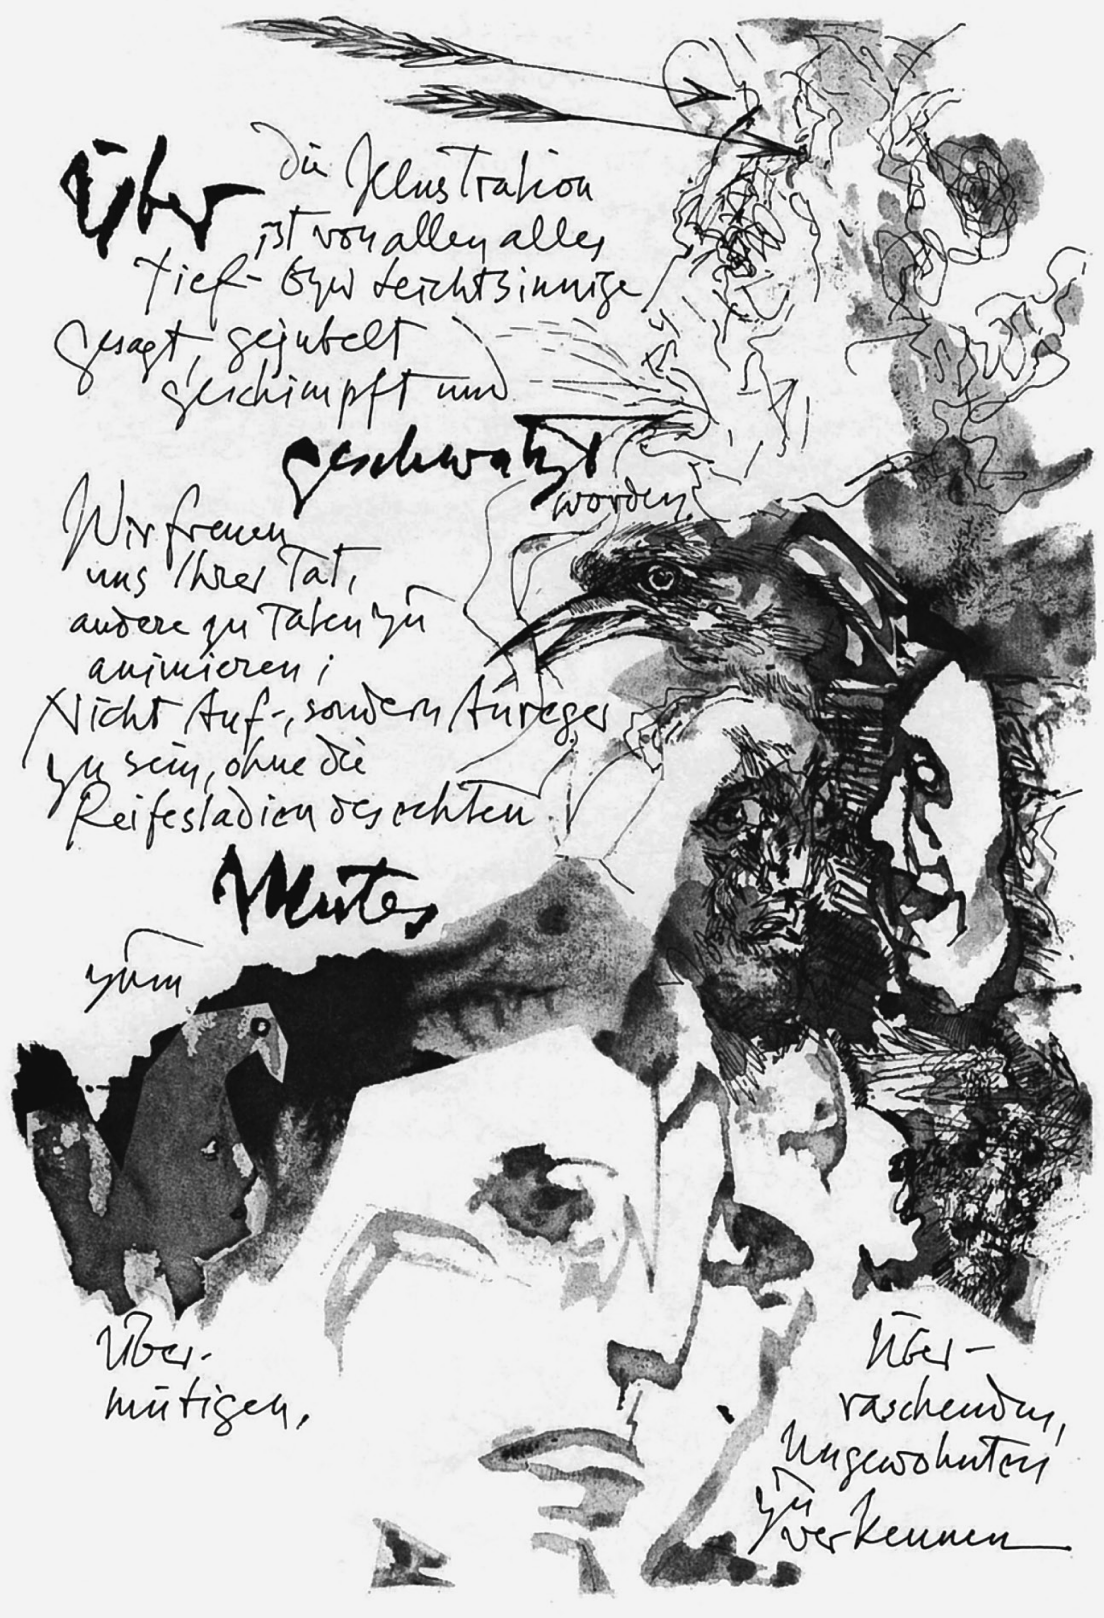 Über die Illustration
ist von allen alles
tief- bzw leichtsinnige
gesagt, gejubelt
geschimpft und
geschwätzt
worden.
Wir freuen
uns Ihrer Tat,
andere zu Taten zu
animieren;
Nicht Auf-, sondern Anreger
zu sein, ohne die
Reifestadien des echten
Mutes
zum
Über-
mütigen,
Über-
raschenden,
Ungewohnten
zu
verkennen